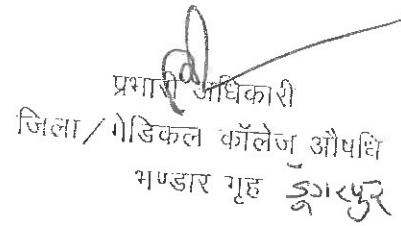 प्रभारी अधिकारी
जिला/मेडिकल कॉलेज औषधि
भण्डार गृह डूंगरपुर